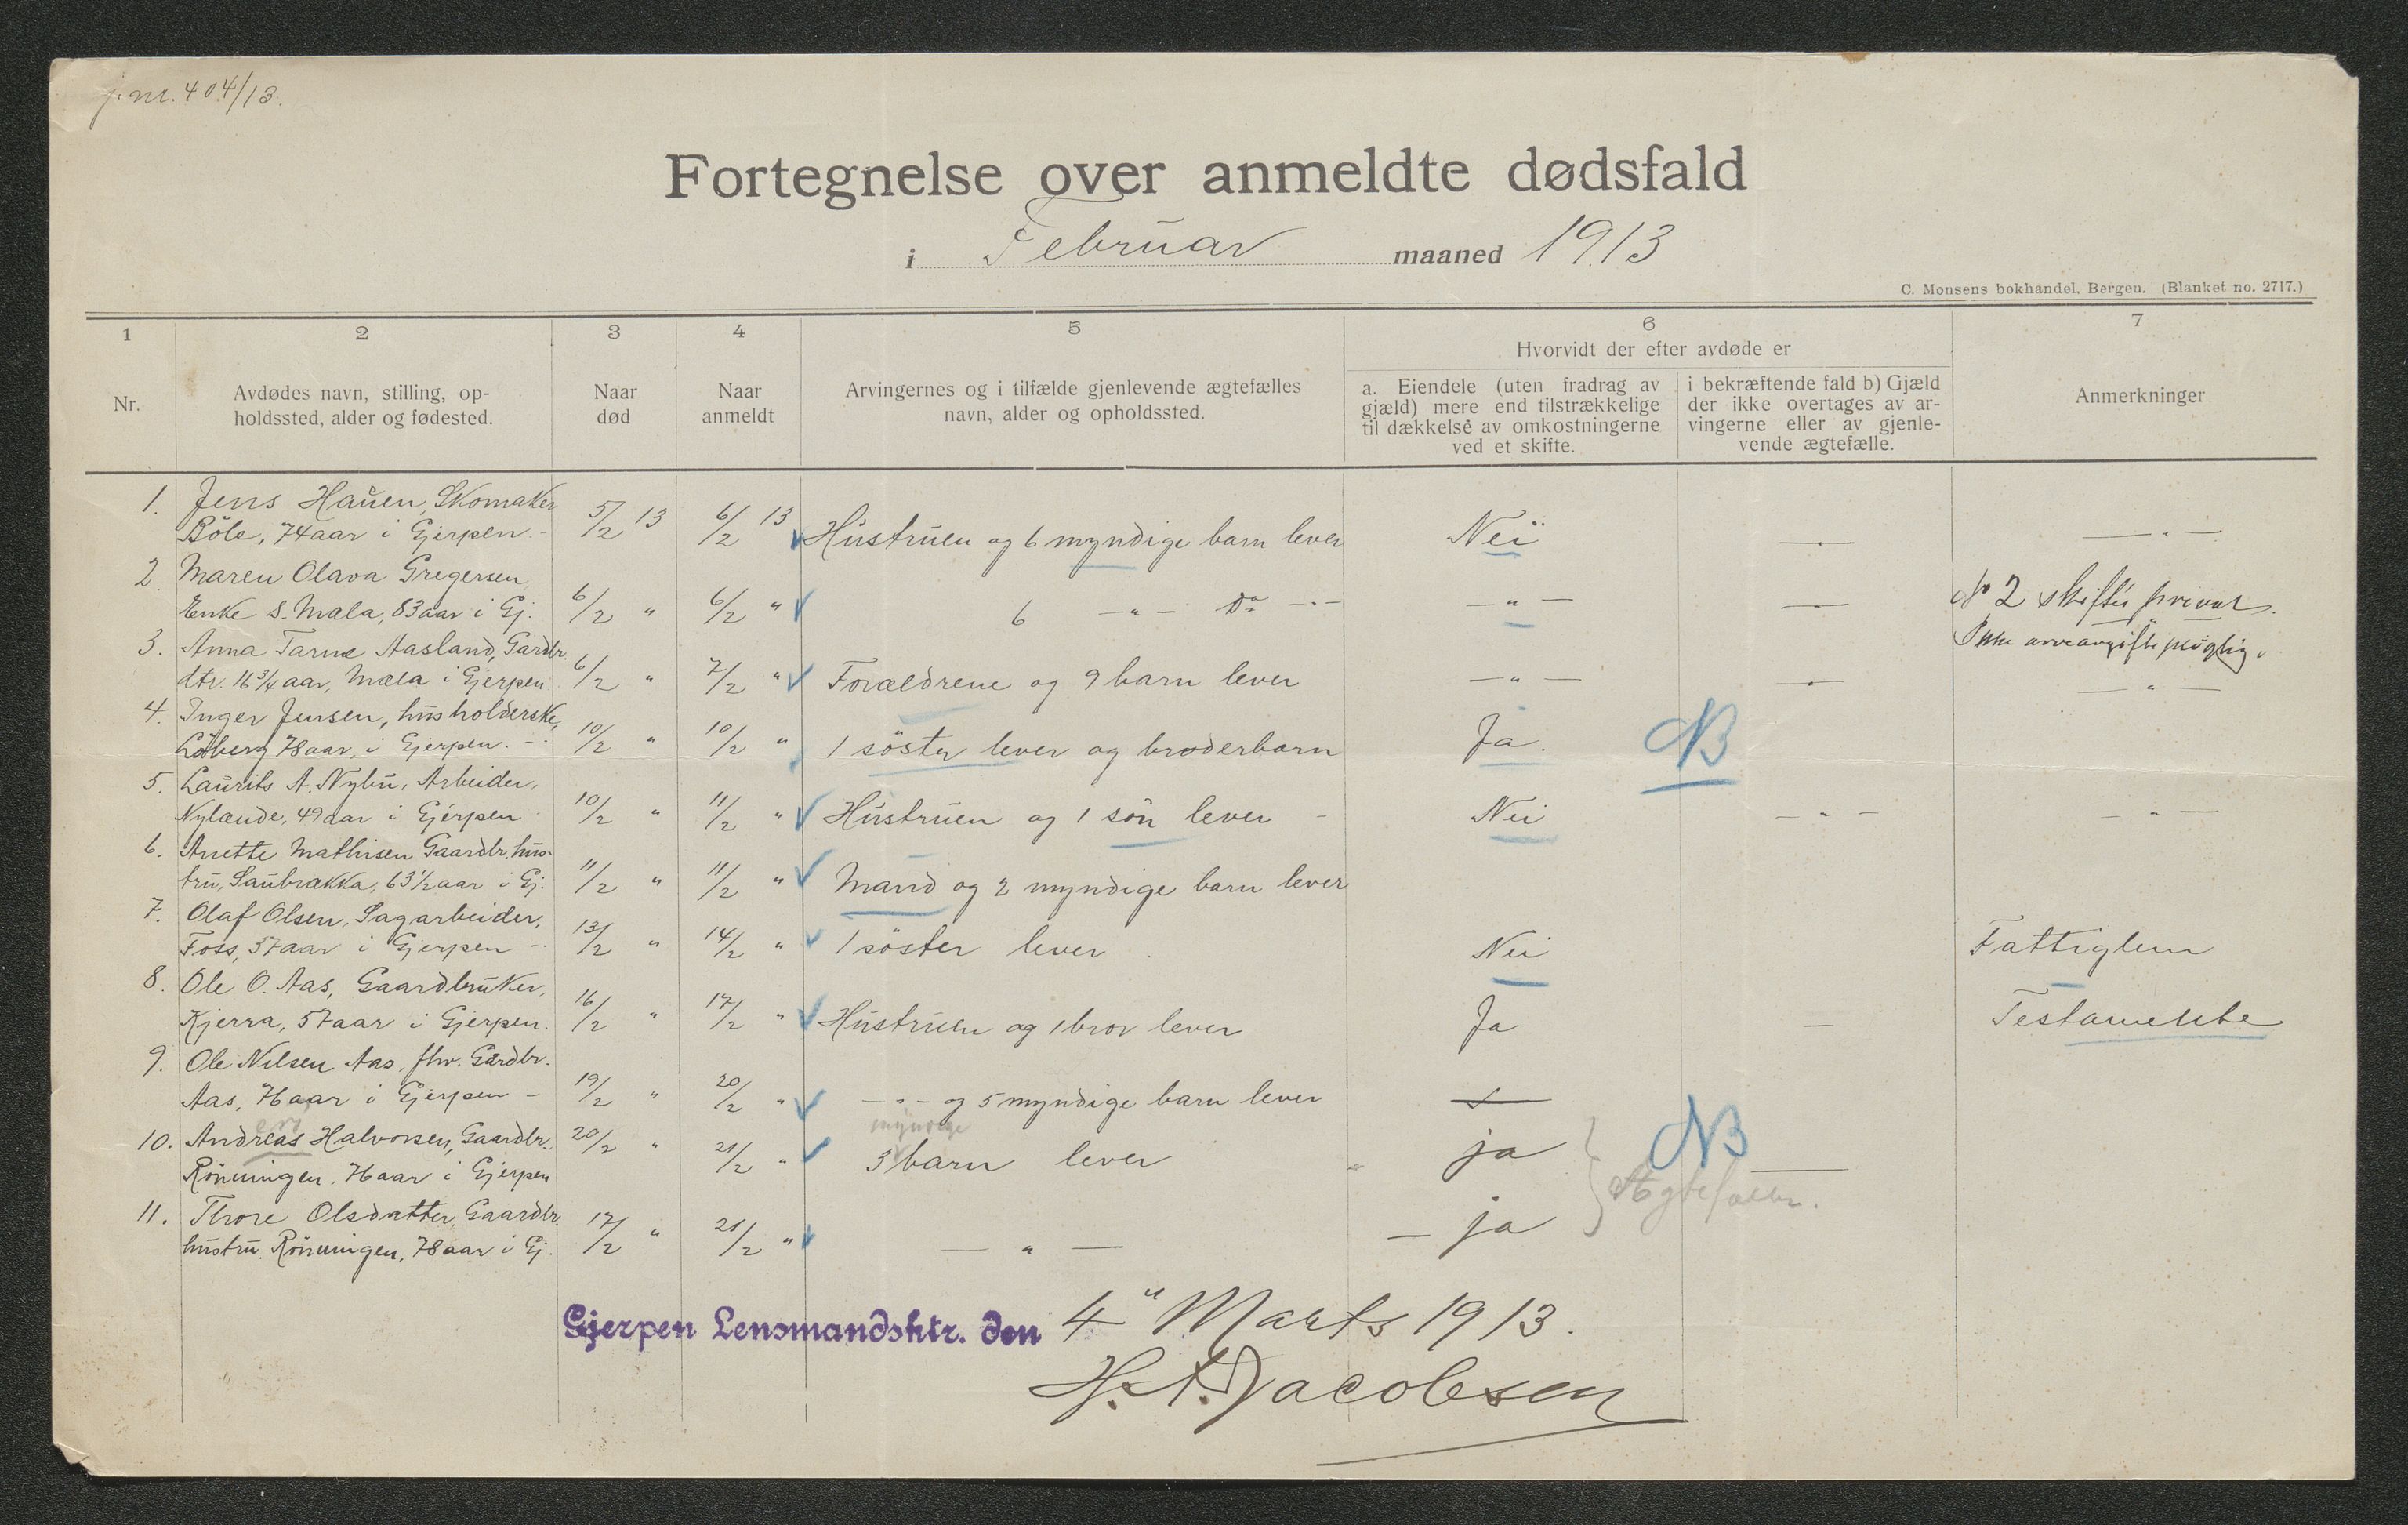 j. nr. 404/13.
Fortegnelse over anmeldte dødsfald
i Februar maaned 1913
C. Monsens bokhandel, Bergen. (Blanket no. 2717.)
1 2 3 4 5 6 7
Nr.
Avdødes navn, stilling, op-
holdssted, alder og fødested.
Naar
død
Naar
anmeldt
Arvingernes og i tilfælde gjenlevende ægtefælles
navn, alder og opholdssted.
Hvorvidt der efter avdøde er
a. Eiendele (uten fradrag av
gjæld) mere end tilstrækkelige
til dækkelse av omkostningerne
ved et skifte.
i bekræftende fald b) Gjæld
der ikke overtages av ar-
vingerne eller av gjenle-
vende ægtefælle.
Anmerkninger
1. Jens Hauen, Skomaker
Böle, 74 aar i Gjerpen. - 5/2 13 6/2 13 Hustruen og 6 myndige barn lever Nei — " —
2. Maren Olava Gregersen
Enke S. Mæla, 83 aar i Gj. 6/2 " 6/2 " 6 — " — Do — " — — " — No 2 skiftes privat.
Ikke arveavgiftspligtig.
3. Anna Tarine Aasland, Gardbr.
dtr. 16 3/4 aar, Mæla i Gjerpen 6/2 " 7/2 " Forældrene og 9 barn lever — " — — " —
4. Inger Jensen, husholderske,
Löberg 78 aar, i Gjerpen. - 10/2 " 10/2 " 1 söster lever og broderbarn Ja. NB
5. Laurits A. Nybu, Arbeider,
Nylænde, 49 aar i Gjerpen 10/2 " 11/2 " Hustruen og 1 sön lever - Nei — " — — " —
6. Anette Mathisen Gaardbr. hus-
tru, Saubrækka, 63 1/2 aar i Gj. 11/2 " 11/2 " Mand og 2 myndige barn lever
7. Olaf Olsen, Sagarbeider,
Foss, 57 aar i Gjerpen - 13/2 " 14/2 " 1 söster lever. Nei Fattiglem
8. Ole O. Aas, Gaardbruker,
Kjerra, 57 aar i Gjerpen. 16/2 " 17/2 " Hustruen og 1 bror lever Ja — Testamente
9. Ole Nilsen Aas, fhv. Gardbr.
Aas, 76 aar i Gjerpen - 19/2 " 20/2 " — " — og 5 myndige barn lever
myndige
10. Andreas Halvorsen, Gaardbr. 20/2 " 21/2 " 3 barn lever " ja NB
Rönningen, 76 aar i Gjerpen
Ægtefæller.
11. Thore Olsdatter, Gaardbr.
hustru, Rönningen, 78 aar i Gj. 17/2 " 21/2 " — " — — ja
Gjerpen Lensmandsktr. den 4 " Marts 1913.
H. A. Jacobsen